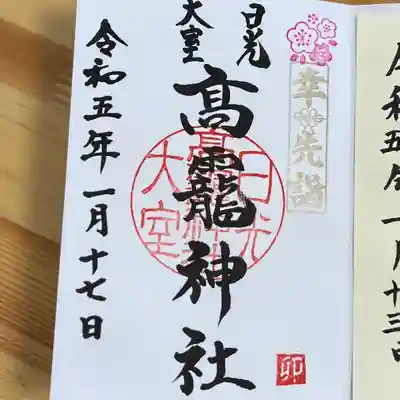 幸先詣
日光
大室
高龗神社
日光
大室
卯
令和五年一月十七日
令和五年一月十三日